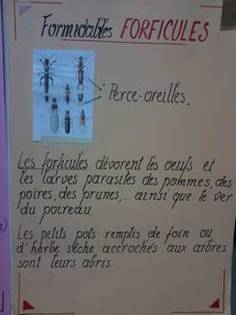 Formidables FORFICULES
Perce-oreilles.
Les forficules dévorent les oeufs et
les larves parasites des pommes, des
poires, des prunes,... ainsi que le ver
du poireau.
Les petits pots remplis de foin ou
d'herbe sèche accrochés aux arbres
sont leurs abris.